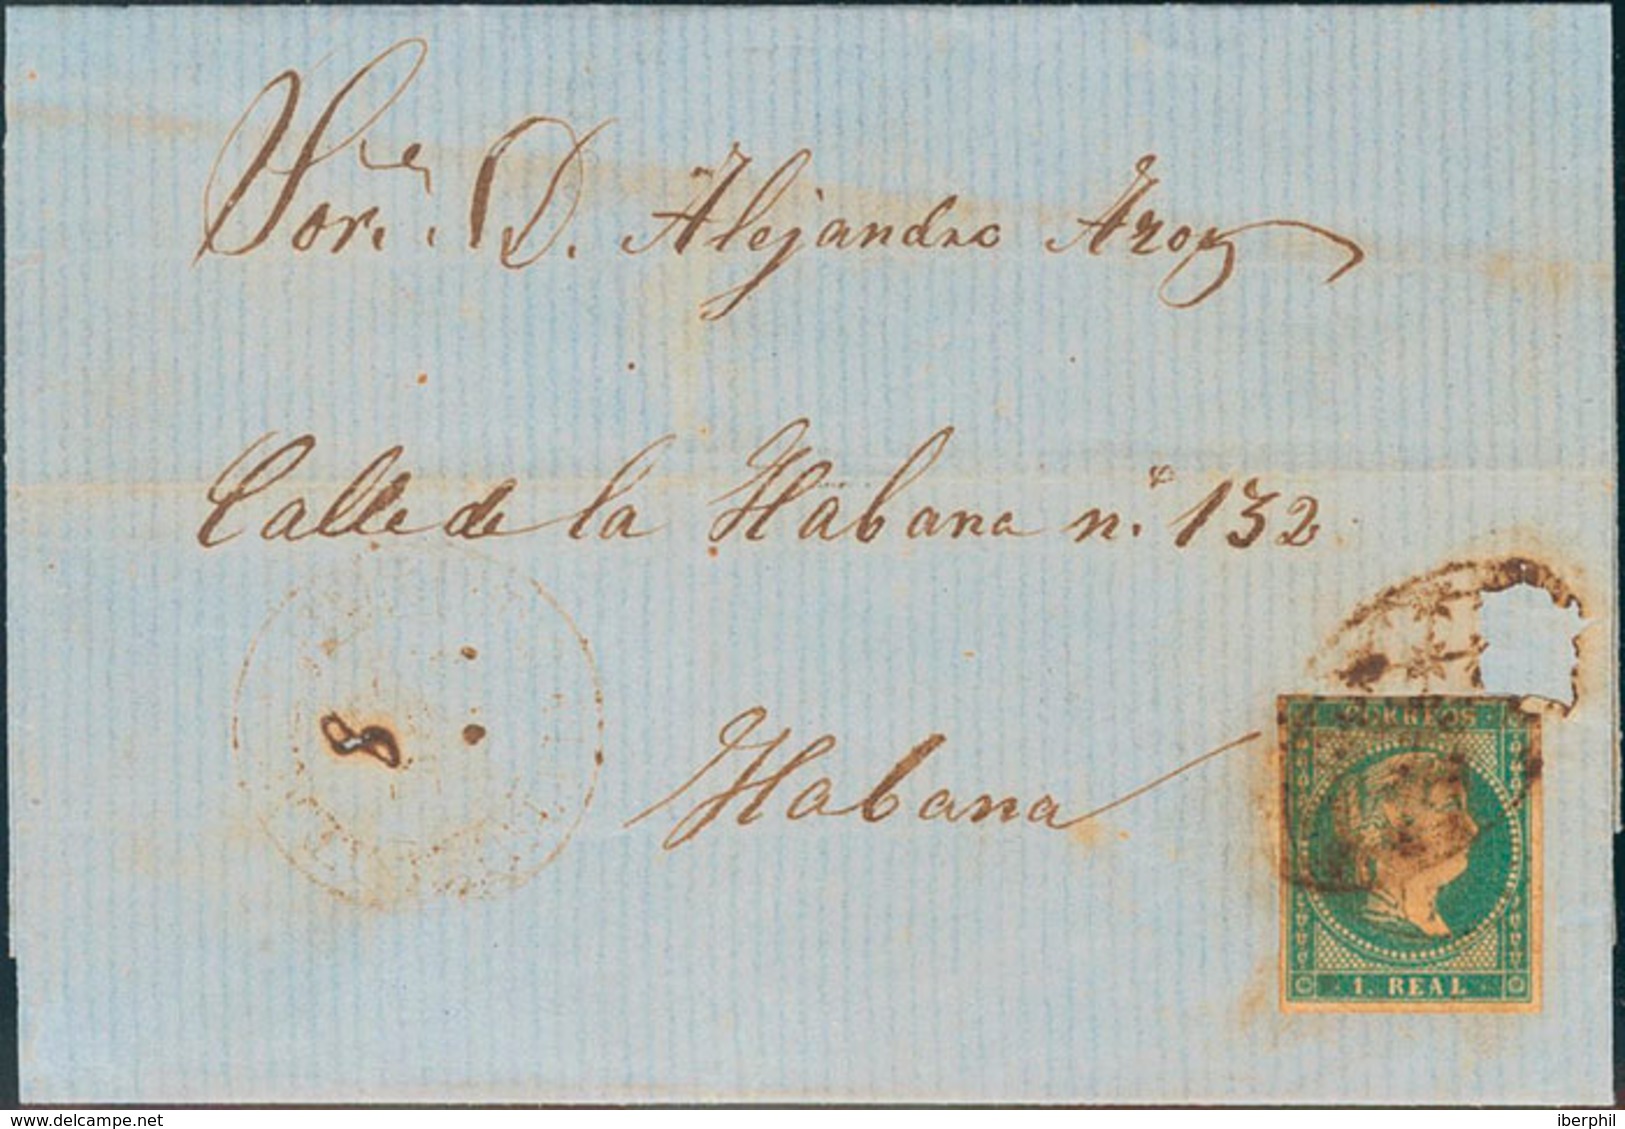 Sor. D. Alejandro Aroz
Calle de la Habana n.º 132
Habana
8
CORREOS
1. REAL
delcampe.net
iberphil